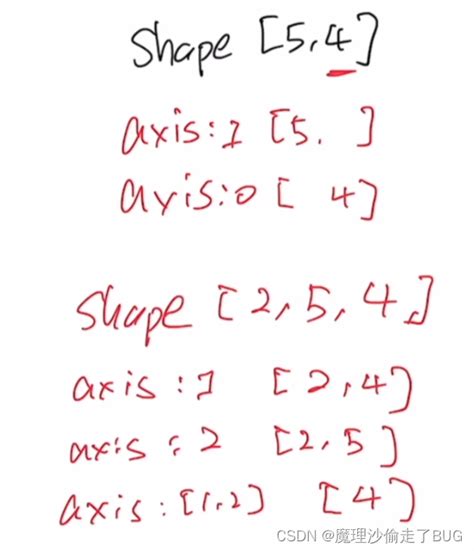 shape [5,4]
axis:1 [5. ]
axis:0 [ 4]
shape [2,5,4,]
axis:1 [2,4]
axis:2 [2,5]
axis:[1,2] [4]
CSDN @魔理沙偷走了BUG